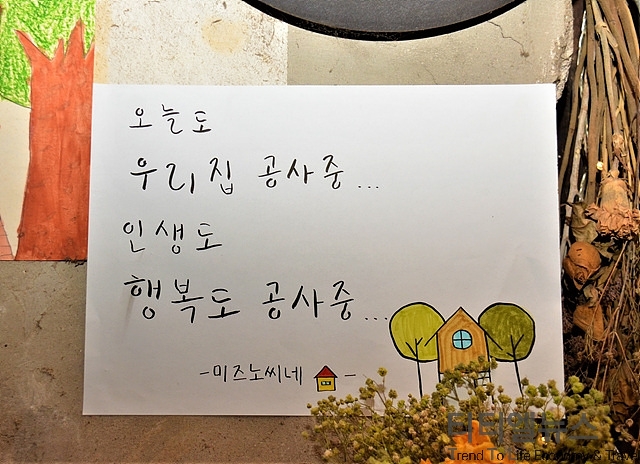 오늘도
우리집 공사중...
인생도
행복도 공사중...
-미즈노씨네 -
Trend To Life